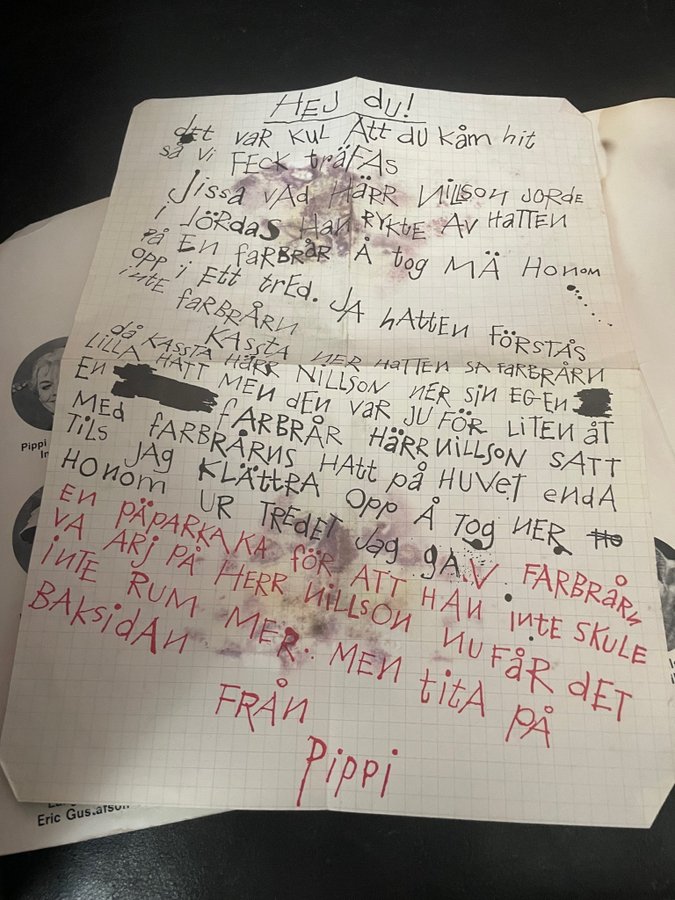 HEJ du!
dEt VAR KUL Att du KåM hit
så vi FECK träFAS
Jissa VAd HÄRR NILLSON JORDE
i JÖRdAS HAN RYKtE AV HATTEN
På EN FARBRÅR Å tog MÄ HONOM
OPP i Ett tREd. JA hAttEN FÖRStÅS
iNtE FARBRÅRN
KASStA NER HAttEN SA FARBRÅRN
då KASStA HÄRR NILLSON NER Sin EGEN
LILLA HATT MEN dEN VAR JU FÖR LitEN åt
EN FARBRÅR HÄRR NILLSON SATT
MEd FARBRÅRNS HAtt på HUVEt ENdA
TiLS JAG KLÄttRA OPP Å Tog NER
HONOM UR TREdEt JAG gAV FARBRÅRN
EN PÄPARKAKA FÖR ATT HAN iNtE SKULE
VA ARJ PÅ HERR NiLLSON NU FÅR dET
iNtE RUM MER. MEN titA PÅ
BAKSidAN
FRÅN
Pippi
Pippi
Eric Gustafson